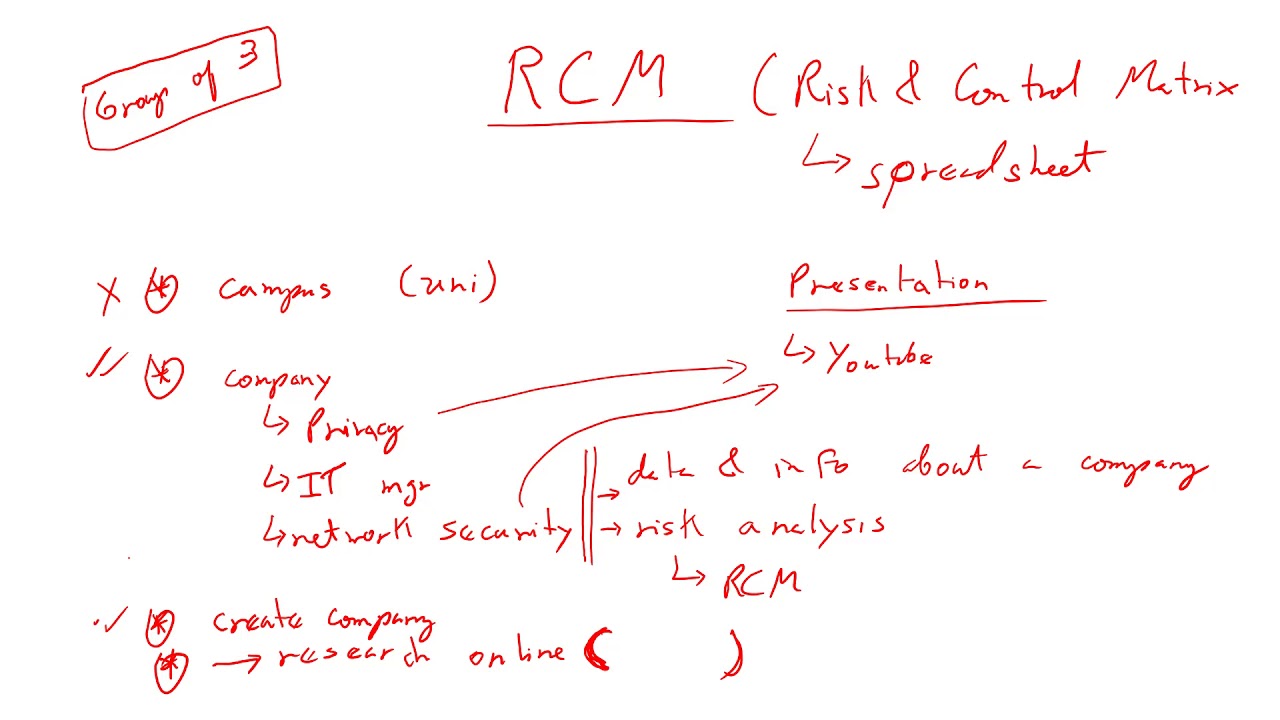 Group of 3
RCM (Risk & Control Matrix
↳ spreadsheet
X * campus (uni)
Presentation
↳ Youtube
✓✓ * company
↳ Privacy
↳ IT mgr
↳ network security
→ data & info about a company
→ risk analysis
↳ RCM
✓ * create company
* → research online ( )